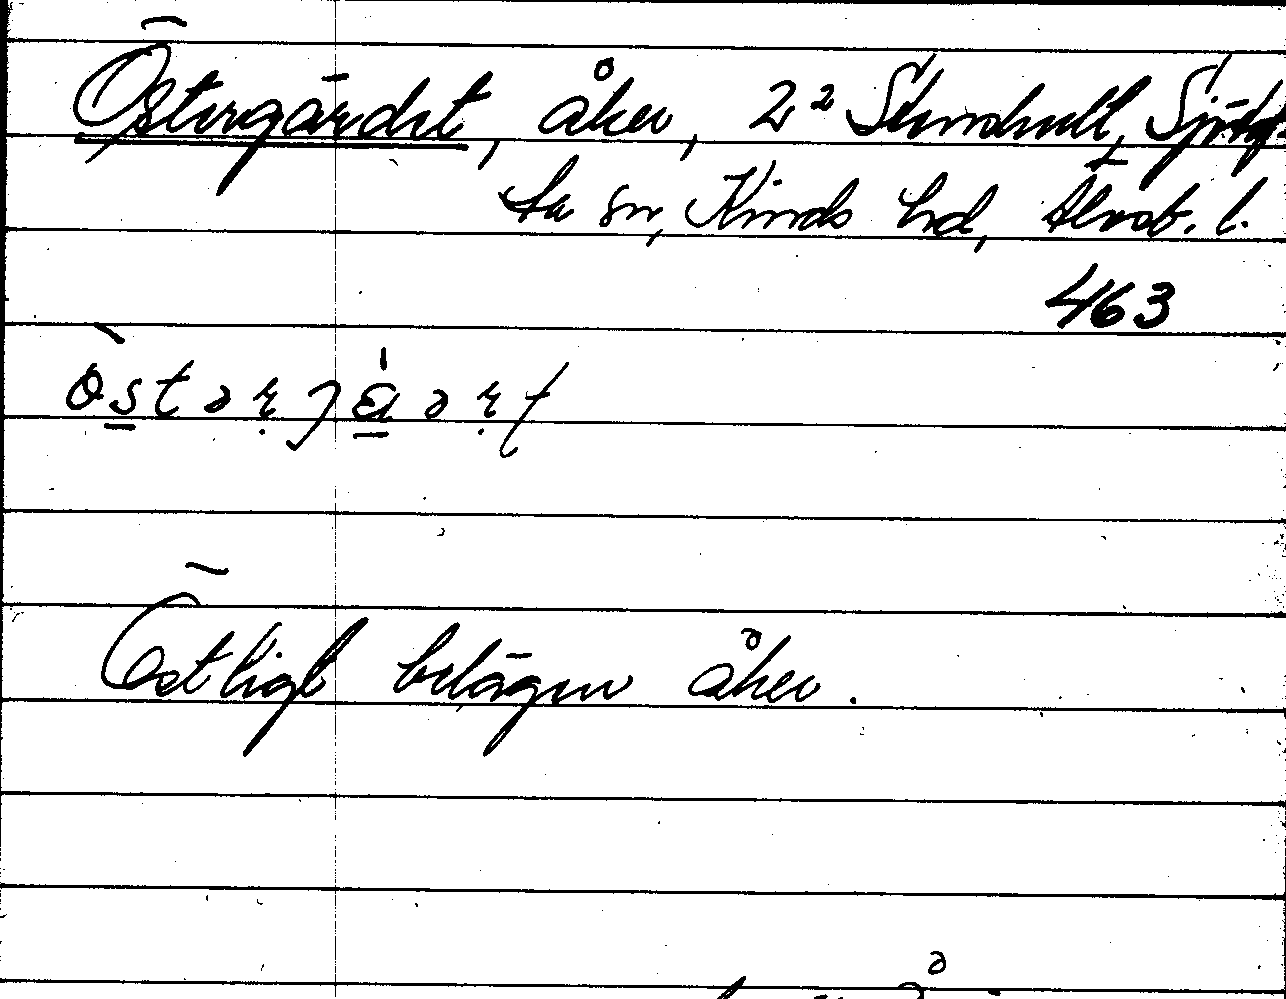 Östergärdet, åker, 2² Stenshult, Sjötof-
ta sn, Kinds hd, Älvsb. l.
463
Östligt belägen åker.